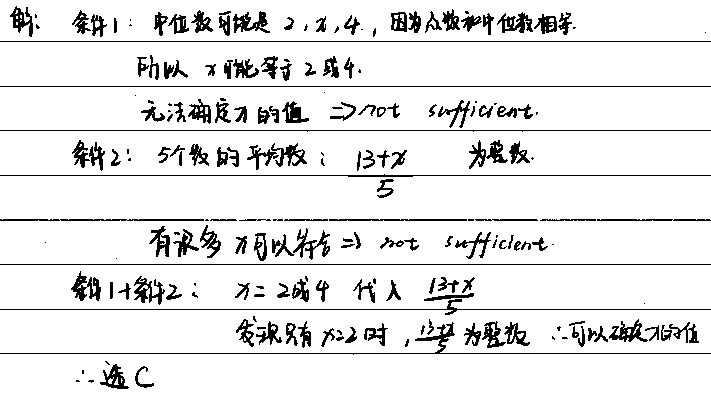 解: 条件1: 中位数可能是 2, x, 4., 因为众数和中位数相等.
所以 x可能等于 2 或4.
无法确定x的值 => not sufficient.
条件2: 5个数的平均数: (13+x)/5 为整数.
有很多x可以符合 => not sufficient.
条件1+条件2: x=2或4 代入 (13+x)/5
发现只有x=2时, (13+x)/5 为整数 ∴可以确定x的值
∴选C